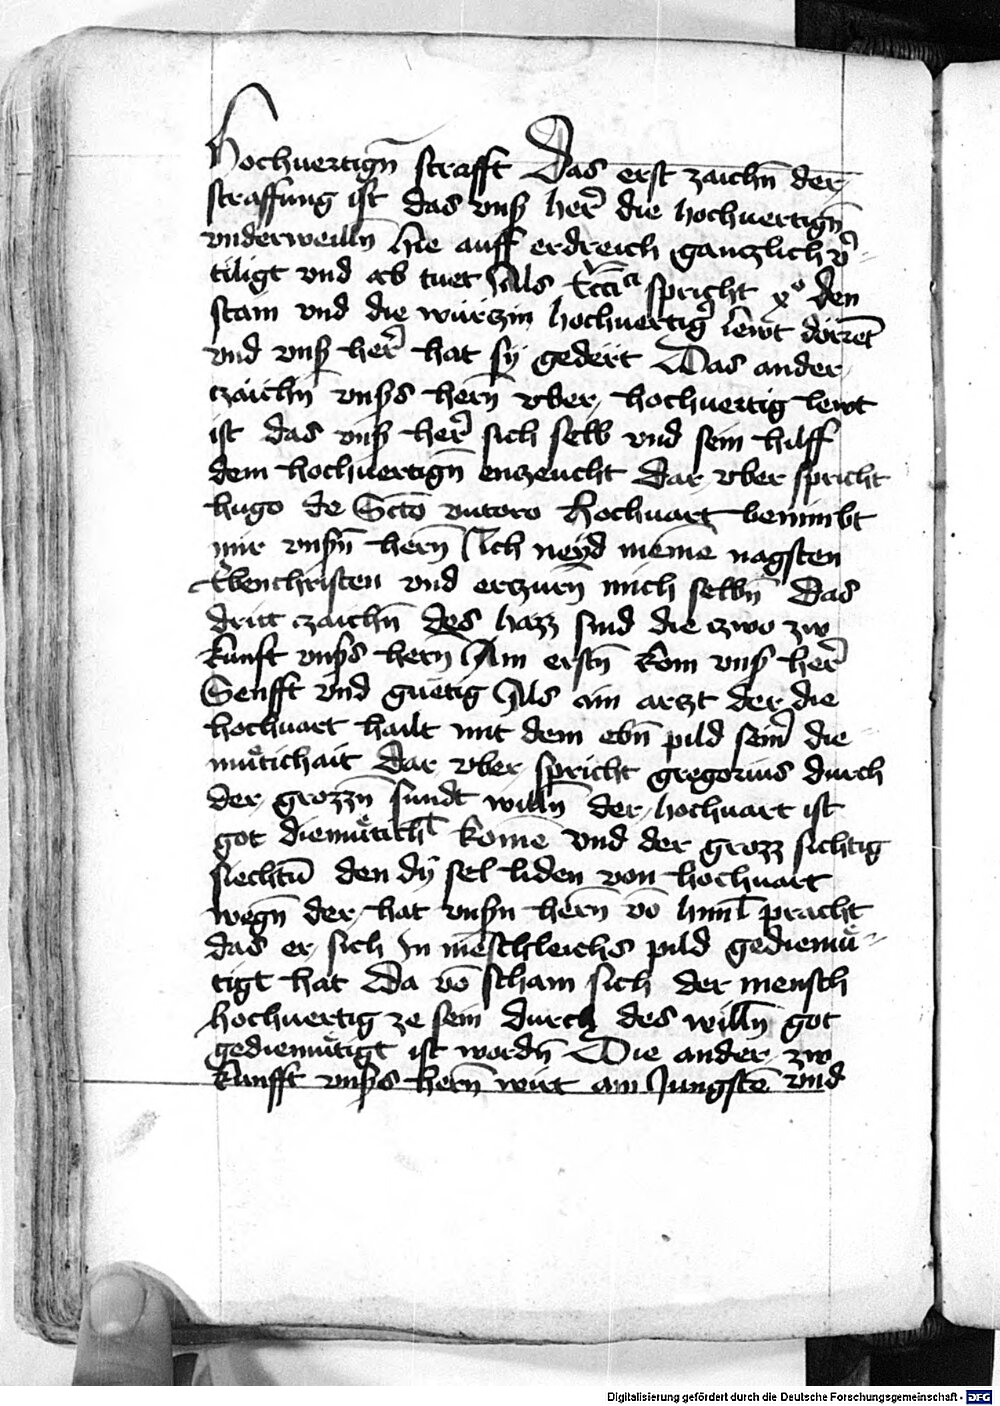 Hochuertign̄ strafft Das erst zaichn̄ der
straffung ist das vnß her̄ die hochuertign̄
vnderweilln̄ hie auff erdreich ganczlich v̄
tiligt vnd ab tuet Als spricht xº den
stam vnd die würczin hochuertig̉ lewt dörret
vnd vnß her̄ hat sy gedert Das ander
czaichn̄ vnßs hern̄ vber hochuertig lewt
ist das vnß her̄ sich selb vnd sein hilff
dem hochuertign̄ enczeucht Dar vber spricht
hugo de Scto victore Hochuart benimbt
mir vnßn̄ hern̄ Ich neyd meīne nagsten
Ebenchristen vnd erczurn̄ mich selbn̄ Das
dritt czaichn̄ des hazz sind die czwo zw
kunft vnßs hern̄ Am erstn̄ kom vnß her̄
Senfft vnd guetig Als ain arzt der die
hochuart hailt mit dem ebn̄ pild sein̄ die
muͤtichait Dar vber spricht gregorius durch
der grozzn̄ sundt willn̄ der hochuart ist
got diemuͤtich̄ komē vnd der grozz sichtig
siechtū den dy sel liden von hochuart
wegn̄ der hat vnßn hern̄ vō himl̄ pracht
das er sich In mēschleichs pild gediemuͤ-
tigt hat Da vō scham sich der mensch
hochuertig ze sein durch des willn̄ got
gediemuͤtigt ist wordn̄ Die ander zw
kunfft vnßs hern̄ wirt am Jungstē vnd
Digitalisierung gefördert durch die Deutsche Forschungsgemeinschaft - DFG